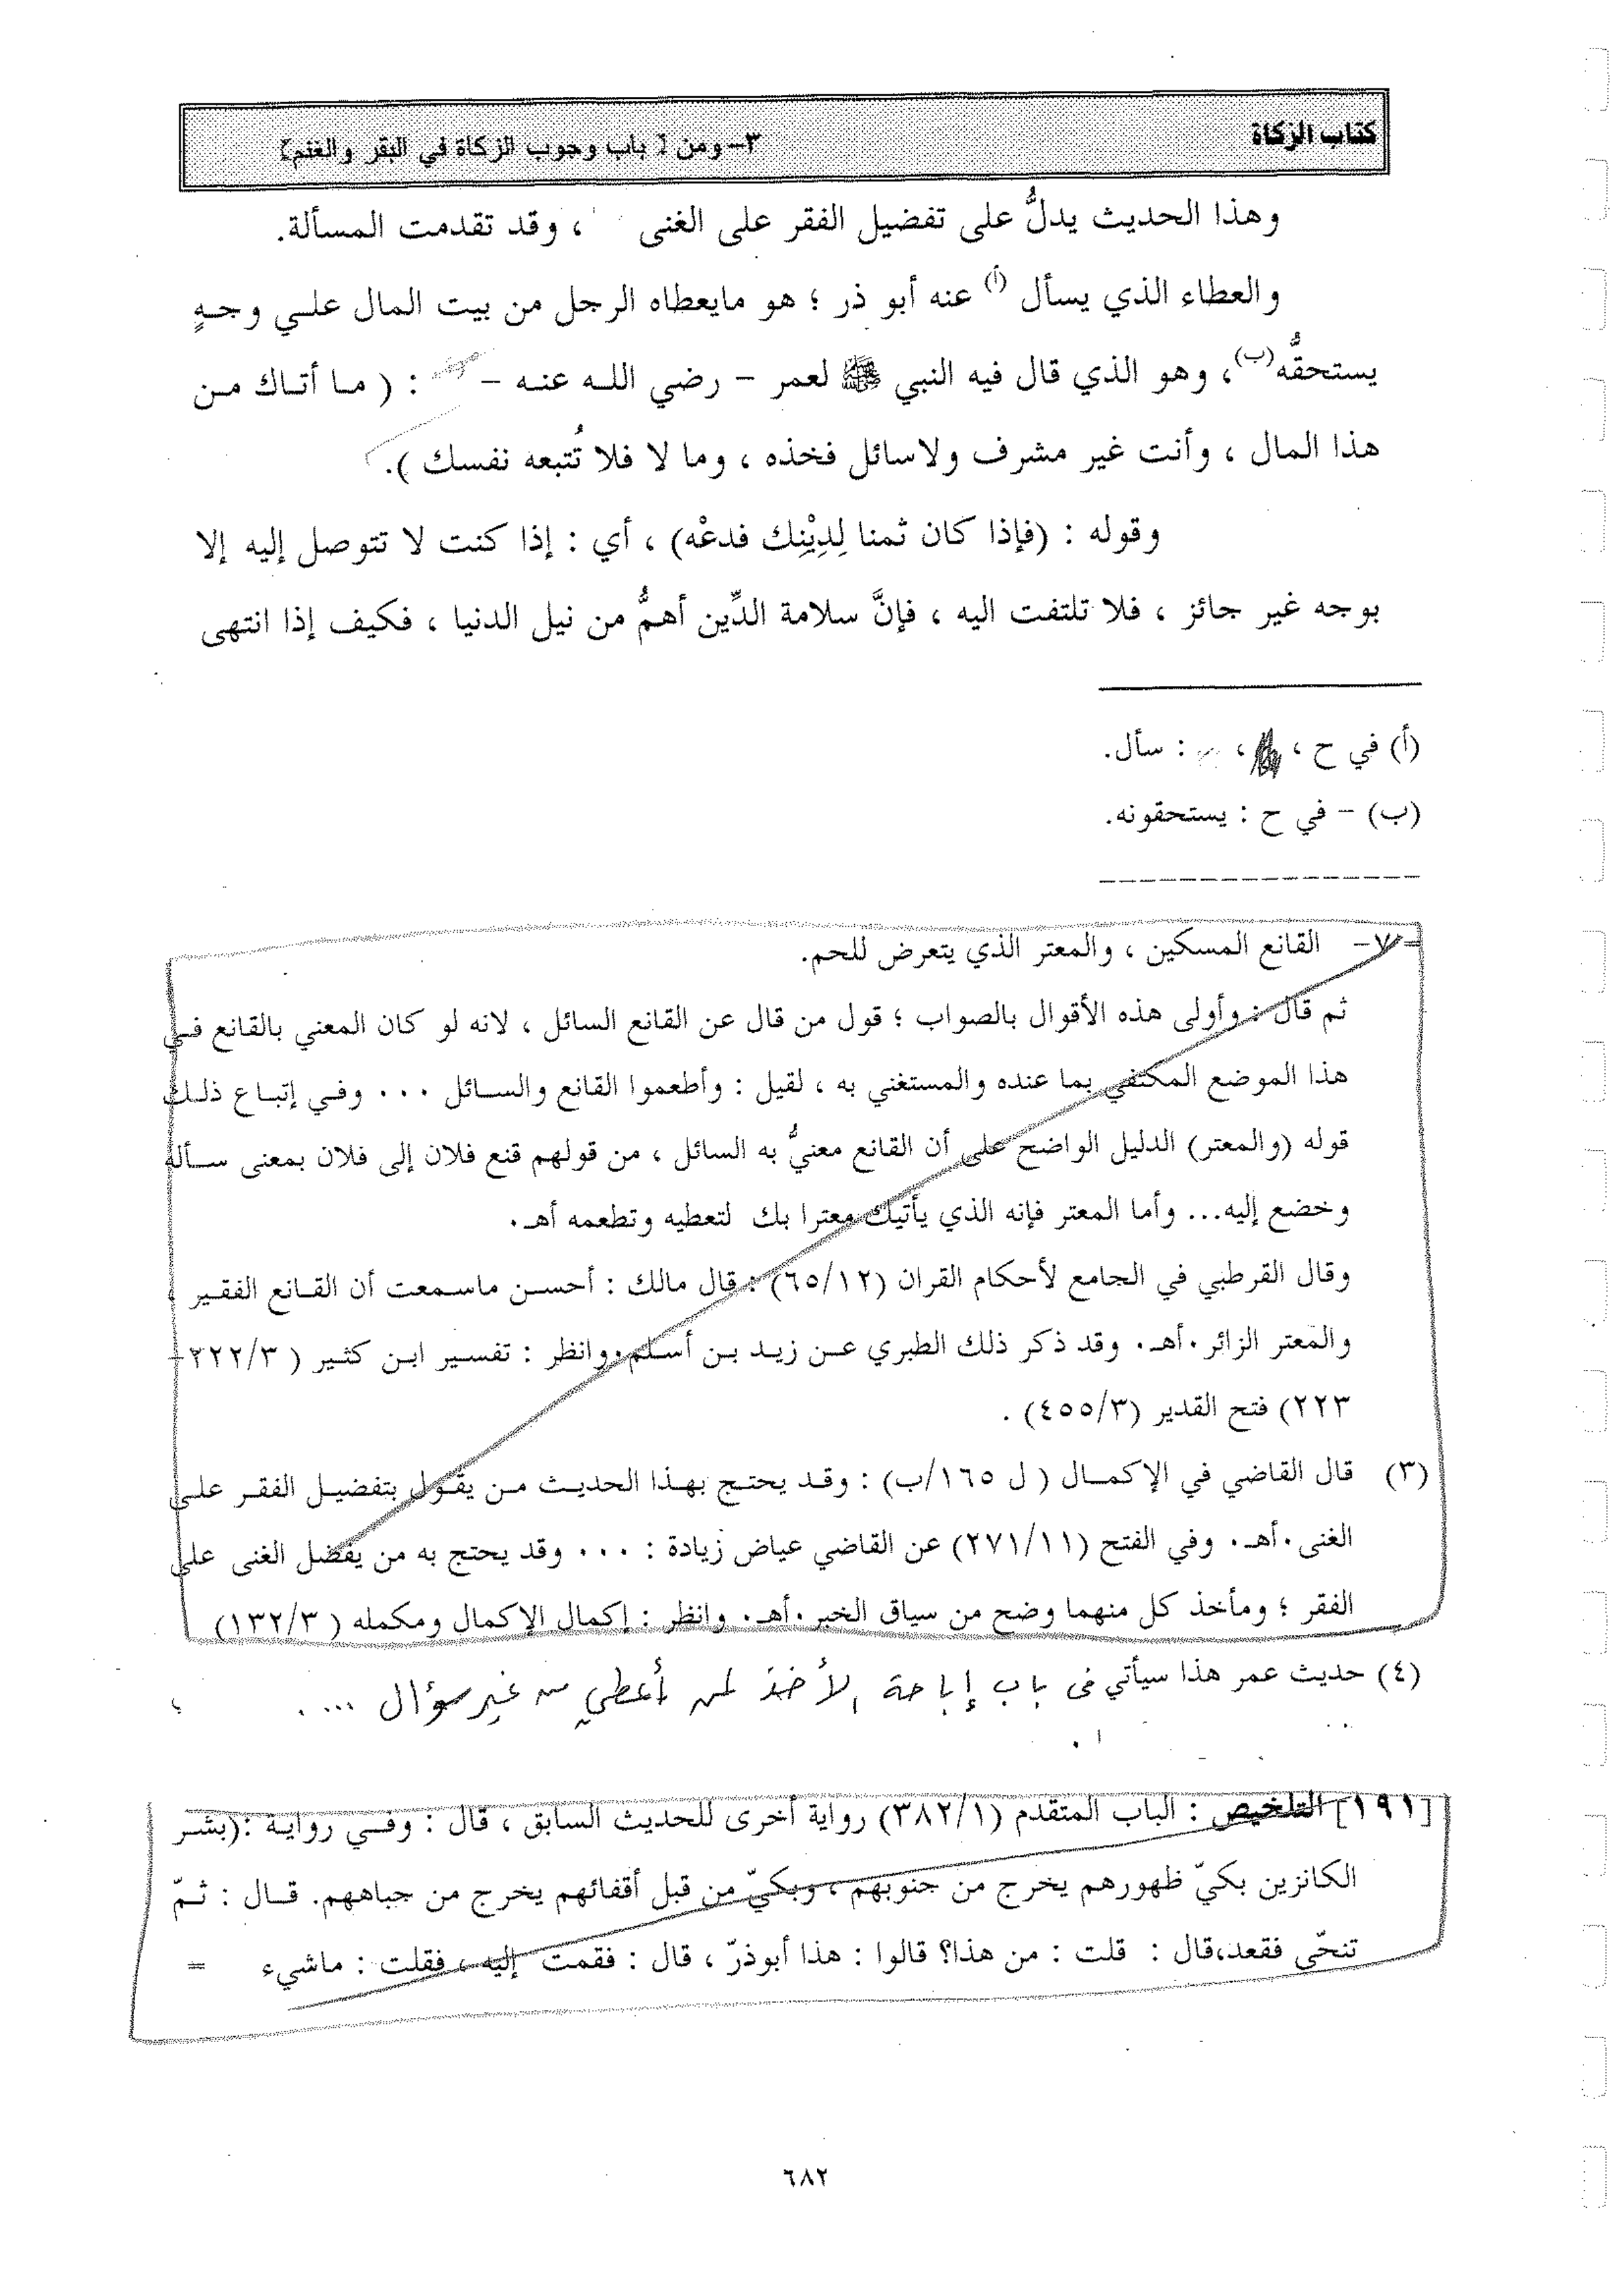 كتاب الزكاة
٣- ومن [ باب وجوب الزكاة في البقر والغنم]
وهذا الحديث يدلُّ على تفضيل الفقر على الغنى ، وقد تقدمت المسألة.
والعطاء الذي يسأل (أ) عنه أبو ذر ؛ هو مايعطاه الرجل من بيت المال علي وجهٍ
يستحقُّه(ب)، وهو الذي قال فيه النبي ﷺ لعمر - رضي الله عنه - : ( ما أتاك من
هذا المال ، وأنت غير مشرف ولاسائل فخذه ، وما لا فلا تُتبعه نفسك ).
وقوله : (فإذا كان ثمنا لِدِيْنِك فدعْه) ، أي : إذا كنت لا تتوصل إليه إلا
بوجه غير جائز ، فلا تلتفت اليه ، فإنَّ سلامة الدِّين أهمُّ من نيل الدنيا ، فكيف إذا انتهى
(أ) في ح ، ، : سأل.
(ب) - في ح : يستحقونه.
=٧- القانع المسكين ، والمعتر الذي يتعرض للحم.
ثم قال : وأولى هذه الأقوال بالصواب ؛ قول من قال عن القانع السائل ، لانه لو كان المعني بالقانع في
هذا الموضع المكتفي بما عنده والمستغني به ، لقيل : وأطعموا القانع والسائل ... وفي إتباع ذلك
قوله (والمعتر) الدليل الواضح على أن القانع معنيُّ به السائل ، من قولهم قنع فلان إلى فلان بمعنى سأله
وخضع إليه... وأما المعتر فإنه الذي يأتيك معترا بك لتعطيه وتطعمه أهـ.
وقال القرطبي في الجامع لأحكام القران (٦٥/١٢) : قال مالك : أحسن ماسمعت أن القانع الفقير ،
والمعتر الزائر.أهـ. وقد ذكر ذلك الطبري عن زيد بن أسلم.وانظر : تفسير ابن كثير ( ٢٢٢/٣-
٢٢٣) فتح القدير (٤٥٥/٣) .
(٣) قال القاضي في الإكمال ( ل ١٦٥/ب) : وقد يحتج بهذا الحديث من يقول بتفضيل الفقر على
الغنى.أهـ. وفي الفتح (٢٧١/١١) عن القاضي عياض زيادة : ... وقد يحتج به من يفضل الغنى على
الفقر ؛ ومأخذ كل منهما وضح من سياق الخبر.أهـ. وانظر : إكمال الإكمال ومكمله ( ١٣٢/٣)
(٤) حديث عمر هذا سيأتي في باب إباحة الأخذ لمن أعطي من غير سؤال ....
[١٩١] التلخيص : الباب المتقدم (٣٨٢/١) رواية أخرى للحديث السابق ، قال : وفي رواية :(بشر
الكانزين بكيّ ظهورهم يخرج من جنوبهم ، وبكيّ من قبل أقفائهم يخرج من جباههم. قال : ثمّ
تنحّى فقعد،قال : قلت : من هذا؟ قالوا : هذا أبوذرّ ، قال : فقمت إليه ، فقلت : ماشيء =
٦٨٢